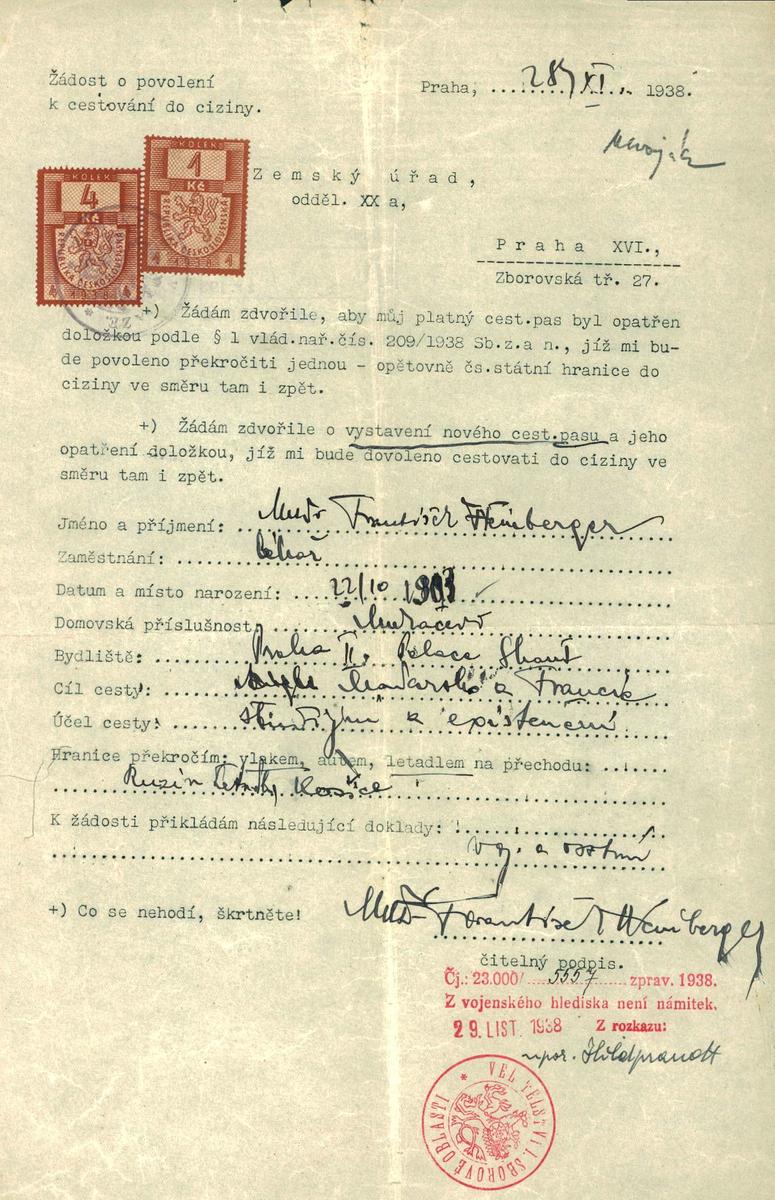 Žádost o povolení
k cestování do ciziny.
Praha, ...28/XI.. 1938.
KOLEK
1
Kč
REPUBLIKA ČESKOSLOVENSKÁ
KOLEK
4
Kč
REPUBLIKA ČESKOSLOVENSKÁ
1938
Zemský úřad,
odděl. XX a,
Praha XVI.,
Zborovská tř. 27.
+) Žádám zdvořile, aby můj platný cest.pas byl opatřen
doložkou podle § 1 vlád.nař.čís. 209/1938 Sb.z.a n., jíž mi bu-
de povoleno překročiti jednou - opětovně čs.státní hranice do
ciziny ve směru tam i zpět.
+) Žádám zdvořile o vystavení nového cest.pasu a jeho
opatření doložkou, jíž mi bude dovoleno cestovati do ciziny ve
směru tam i zpět.
Jméno a příjmení: MUDr František Weinberger
Zaměstnání: lékař
Datum a místo narození: 22/10
Domovská příslušnost:
Bydliště: Praha II, Palace
Cíl cesty: a Francie
Účel cesty: a existenční
Hranice překročím: vlakem, autem, letadlem na přechodu:
Ruzín
K žádosti přikládám následující doklady:
voj. a osobní
+) Co se nehodí, škrtněte!
MUDr František Weinberger
čitelný podpis.
Čj.: 23.000/ 5557 zprav. 1938.
Z vojenského hlediska není námitek.
29. LIST. 1938 Z rozkazu:
npor. Hildprandt
VELITELSTVÍ I. SBOROVÉ OBLASTI